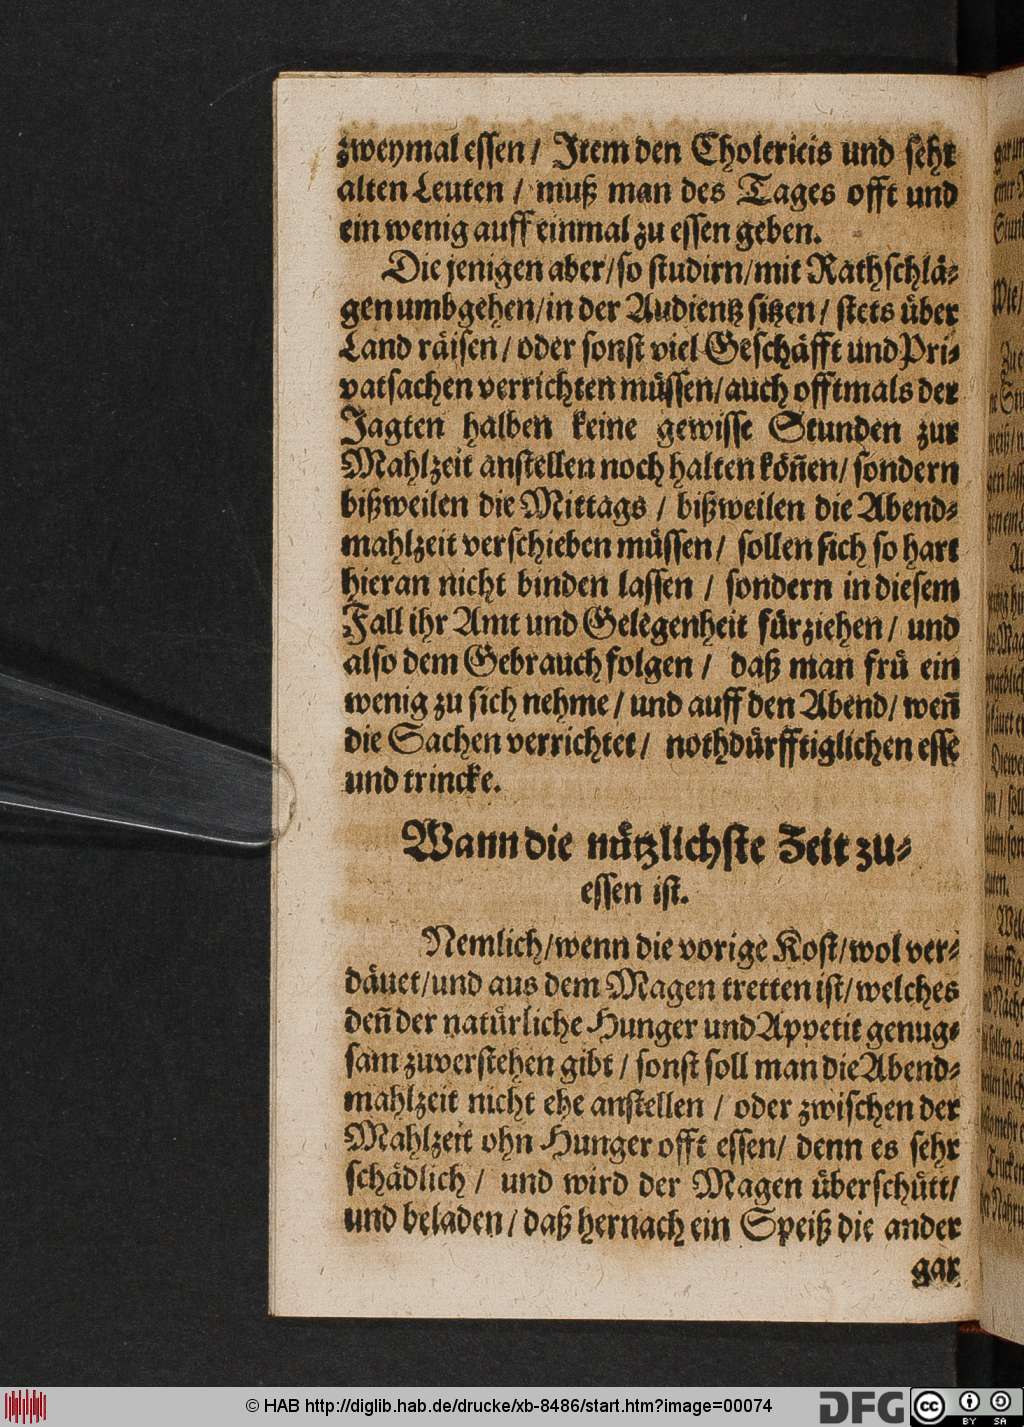 zweymal essen / Item den Cholericis und sehr
alten Leuten / muß man des Tages offt und
ein wenig auff einmal zu essen geben.
Die jenigen aber / so studirn / mit Rathschlä-
gen umbgehen / in der Audientz sitzen / stets über
Land räisen / oder sonst viel Geschäfft und Pri-
vatsachen verrichten müssen / auch offtmals der
Jagten halben keine gewisse Stunden zur
Mahlzeit anstellen noch halten köñen / sondern
bißweilen die Mittags / bißweilen die Abend-
mahlzeit verschieben müssen / sollen sich so hart
hieran nicht binden lassen / sondern in diesem
Fall ihr Amt und Gelegenheit fürziehen / und
also dem Gebrauch folgen / daß man frü ein
wenig zu sich nehme / und auff den Abend / weñ
die Sachen verrichtet / nothdürfftiglichen esse
und trincke.
Wann die nützlichste Zeit zu-
essen ist.
Nemlich / wenn die vorige Kost / wol ver-
däuet / und aus dem Magen tretten ist / welches
deñ der natürliche Hunger und Appetit genug-
sam zuverstehen gibt / sonst soll man die Abend-
mahlzeit nicht ehe anstellen / oder zwischen der
Mahlzeit ohn Hunger offt essen / denn es sehr
schädlich / und wird der Magen überschütt /
und beladen / daß hernach ein Speiß die ander
gar
© HAB http://diglib.hab.de/drucke/xb-8486/start.htm?image=00074
DFG
CC BY SA